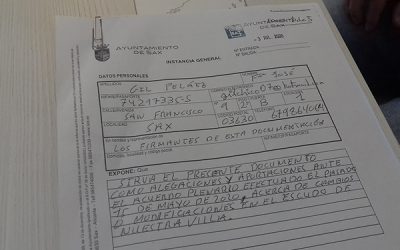 AYUNTAMIENTO
DE SAX
AYUNTAMIENTO
JUL. 2020
Nº ENTRADA
Nº SALIDA
INSTANCIA GENERAL
DATOS PERSONALES
GEL PELÁEZ
Fº JOSÉ
SAN FRANCISCO
9 1º B
SAX
03630
LOS FIRMANTES DE ESTA DOCUMENTACIÓN
EXPONE: Que
SIRVA EL PRESENTE DOCUMENTO
COMO ALEGACIONES Y APORTACIONES ANTE
EL ACUERDO PLENARIO EFECTUADO EL PASADO
15 DE MAYO DE 2020, ACERCA DE CAMBIOS
O MODIFICACIONES EN EL ESCUDO DE
NUESTRA VILLA.